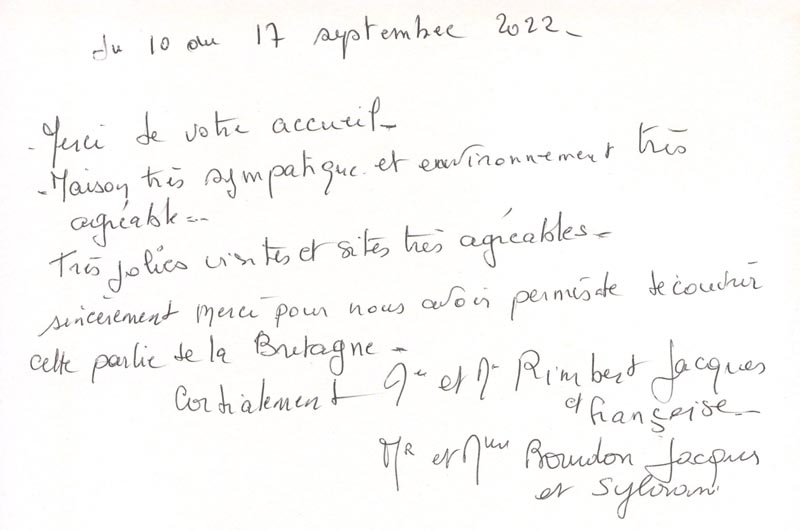 du 10 au 17 septembre 2022-
- Merci de votre accueil-
- Maison très sympatique et environnement très
agréable--
Très jolies visites et sites très agréables-
sincèrement merci pour nous avoir permis de découvrir
cette partie de la Bretagne-
Cordialement Mme et Mr Rimbert Jacques
et Françoise-
MR et Mme Bourdon Jacques
et